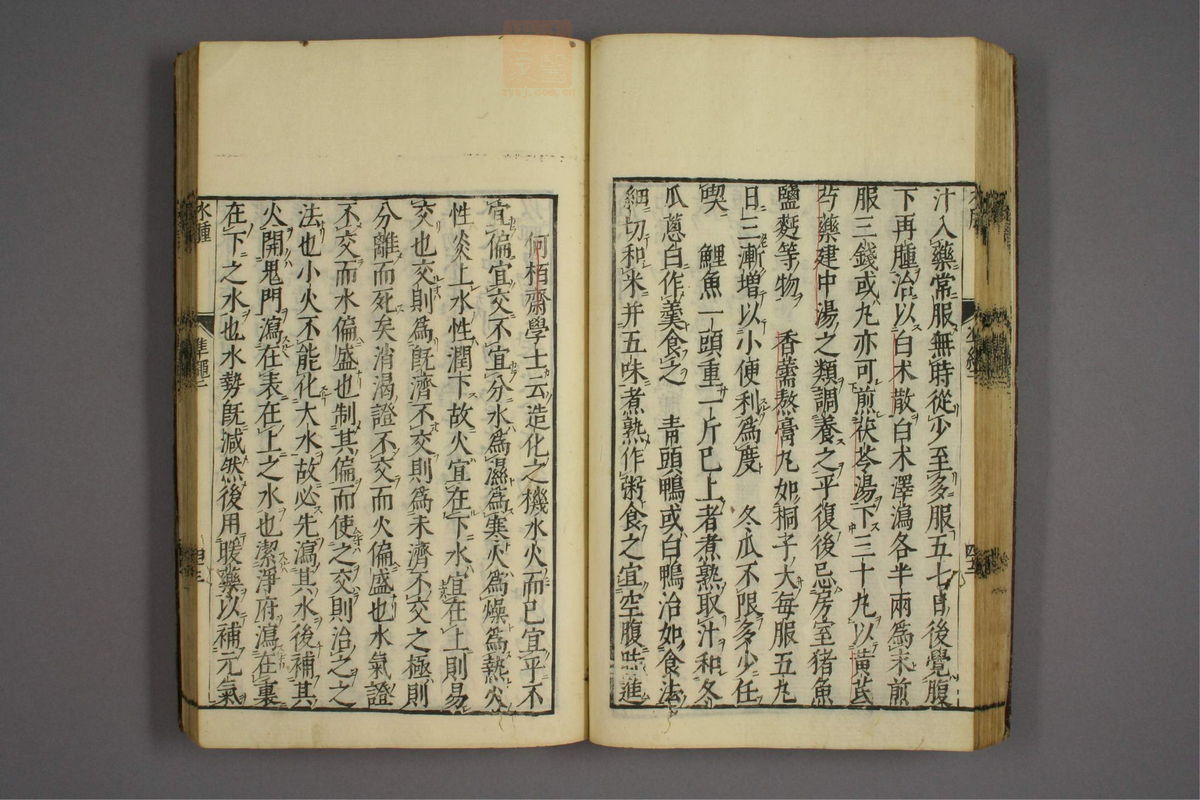 汁入藥常服無時從少至多服五七日後覺腹
下再腫治以白术散白术澤瀉各半兩為末煎
服三錢或丸亦可煎茯苓湯下三十丸以黃芪
芍藥建中湯之類調養之平復後忌房室猪魚
鹽麪等物　香薷熬膏丸如桐子大每服五丸
日三漸增以小便利為度　冬瓜不限多少任
喫　鯉魚一頭重一斤已上者煮熟取汁和冬
瓜蔥白作羹食之　青頭鴨或白鴨治如食法
細切和米并五味煮熟作粥食之宜空腹時進
何栢齋學士云造化之機水火而已宜平不
宜偏宜交不宜分水為濕為寒火為燥為熱火
性炎上水性潤下故火宜在下水宜在上則易
交也交則為旣濟不交則為未濟不交之極則
分離而死矣消渴證不交而火偏盛也水氣證
不交而水偏盛也制其偏而使之交則治之之
法也小火不能化大水故必先瀉其水後補其
火開鬼門瀉在表在上之水也潔淨府瀉在裏
在下之水也水勢旣減然後用暖藥以補元氣
水腫
準繩二